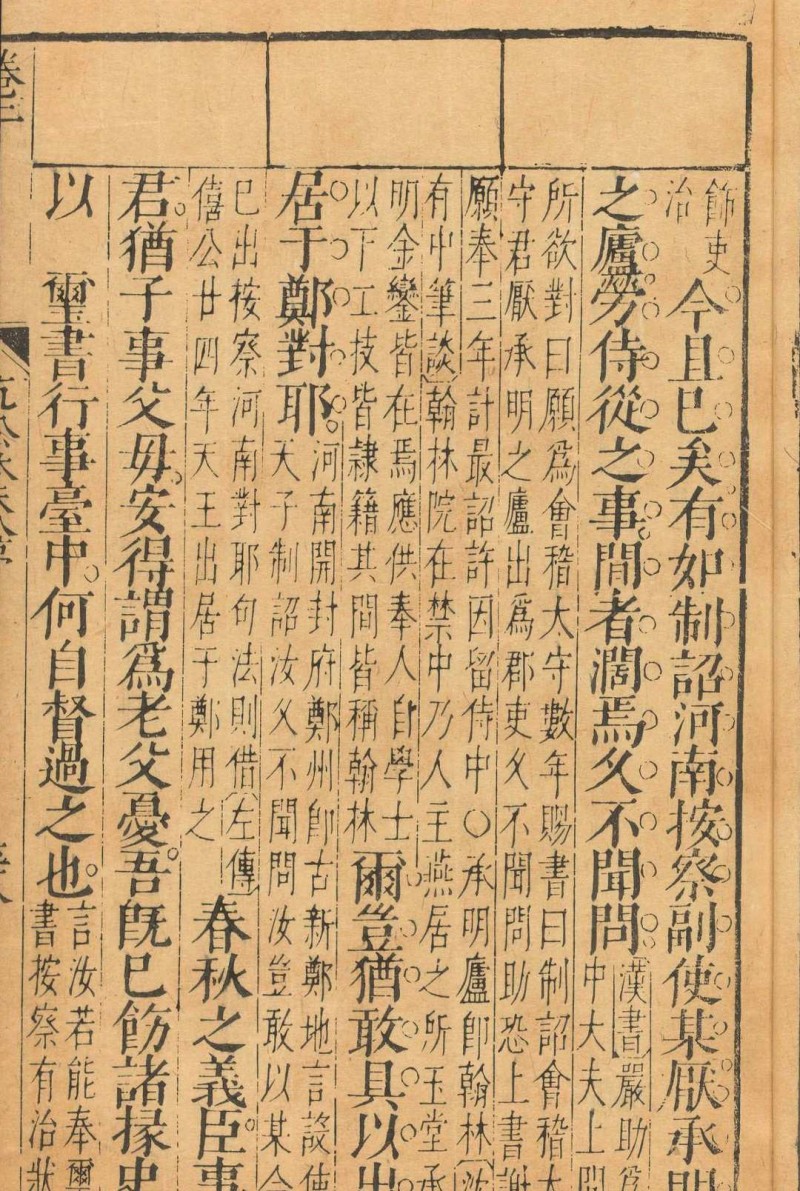 飾吏
治
今且已矣有如制詔河南按察副使某厭承明
之廬勞侍從之事間者濶焉久不聞問
漢書嚴助爲
中大夫上問
所欲對曰願爲會稽太守數年賜書曰制詔會稽太
守君厭承明之廬出爲郡吏久不聞問助恐上書謝
願奉三年計最詔許因留侍中〇承明廬即翰林沈
有中筆談翰林院在禁中乃人主燕居之所玉堂承
明金鑾皆在焉應供奉人自學士
以下工技皆隷籍其間皆稱翰林
爾豈猶敢具以出
居于鄭對耶
河南開封府鄭州即古新鄭地言設使
天子制詔汝久不聞問汝豈敢以某今
巳出按察河南對耶句法則借左傳
僖公廿四年天王出居于鄭用之
春秋之義臣事
君猶子事父母安得謂爲老父憂吾旣已飭諸掾史
以　璽書行事臺中何自督過之也
言汝若能奉璽
書按察有治狀